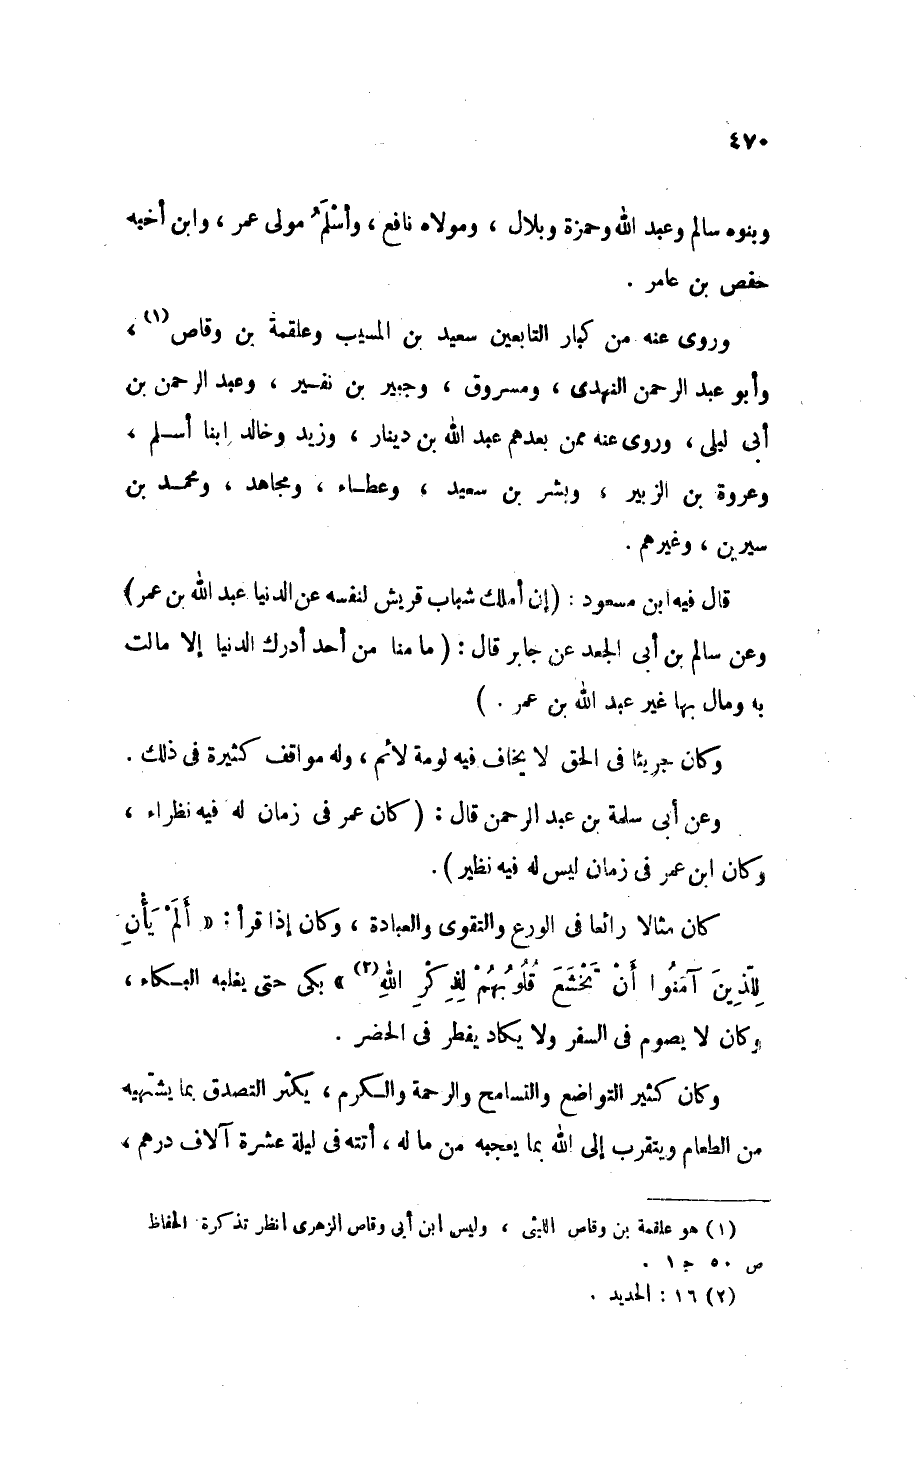 ٤٧٠
وبنوه سالم وعبد الله وحمزة وبلال ، ومولاه نافع ، وأسْلَمُ مولى عمر ، وابن أخيه
حفص بن عامر .
وروى عنه من كبار التابعين سعيد بن المسيب وعلقمة بن وقاص(١) ،
وأبو عبد الرحمن النهدى ، ومسروق ، وجبير بن نفير ، وعبد الرحمن بن
أبى ليلى ، وروى عنه ممن بعدهم عبد الله بن دينار ، وزيد وخالد ابنا أسلم ،
وعروة بن الزبير ، وبشر بن سعيد ، وعطاء ، ومجاهد ، ومحمد بن
سيرين ، وغيرهم .
قال فيه ابن مسعود : (إن أملك شباب قريش لنفسه عن الدنيا عبد الله بن عمر)
وعن سالم بن أبى الجعد عن جابر قال : ( ما منا من أحد أدرك الدنيا إلا مالت
به ومال بها غير عبد الله بن عمر . )
وكان جريئا فى الحق لا يخاف فيه لومة لائم ، وله مواقف كثيرة فى ذلك .
وعن أبى سلمة بن عبد الرحمن قال : ( كان عمر فى زمان له فيه نظراء ،
وكان ابن عمر فى زمان ليس له فيه نظير ) .
كان مثالا رائعا فى الورع والتقوى والعبادة ، وكان إذا قرأ : « أَلَمْ يَأْنِ
لِلَّذِينَ آمَنُوا أَنْ تَخْشَعَ قُلُوبُهُمْ لِذِكْرِ اللهِ(٢) » بكى حتى يغلبه البكاء ،
وكان لا يصوم فى السفر ولا يكاد يفطر فى الحضر .
وكان كثير التواضع والتسامح والرحمة والكرم ، يكثر التصدق بما يشتهيه
من الطعام ويتقرب إلى الله بما يعجبه من ماله ، أتته فى ليلة عشرة آلاف درهم ،
(١) هو علقمة بن وقاص الليثى ، وليس ابن أبى وقاص الزهرى انظر تذكرة الحفاظ
ص ٥٠ ج ١ .
(٢) ١٦ : الحديد .